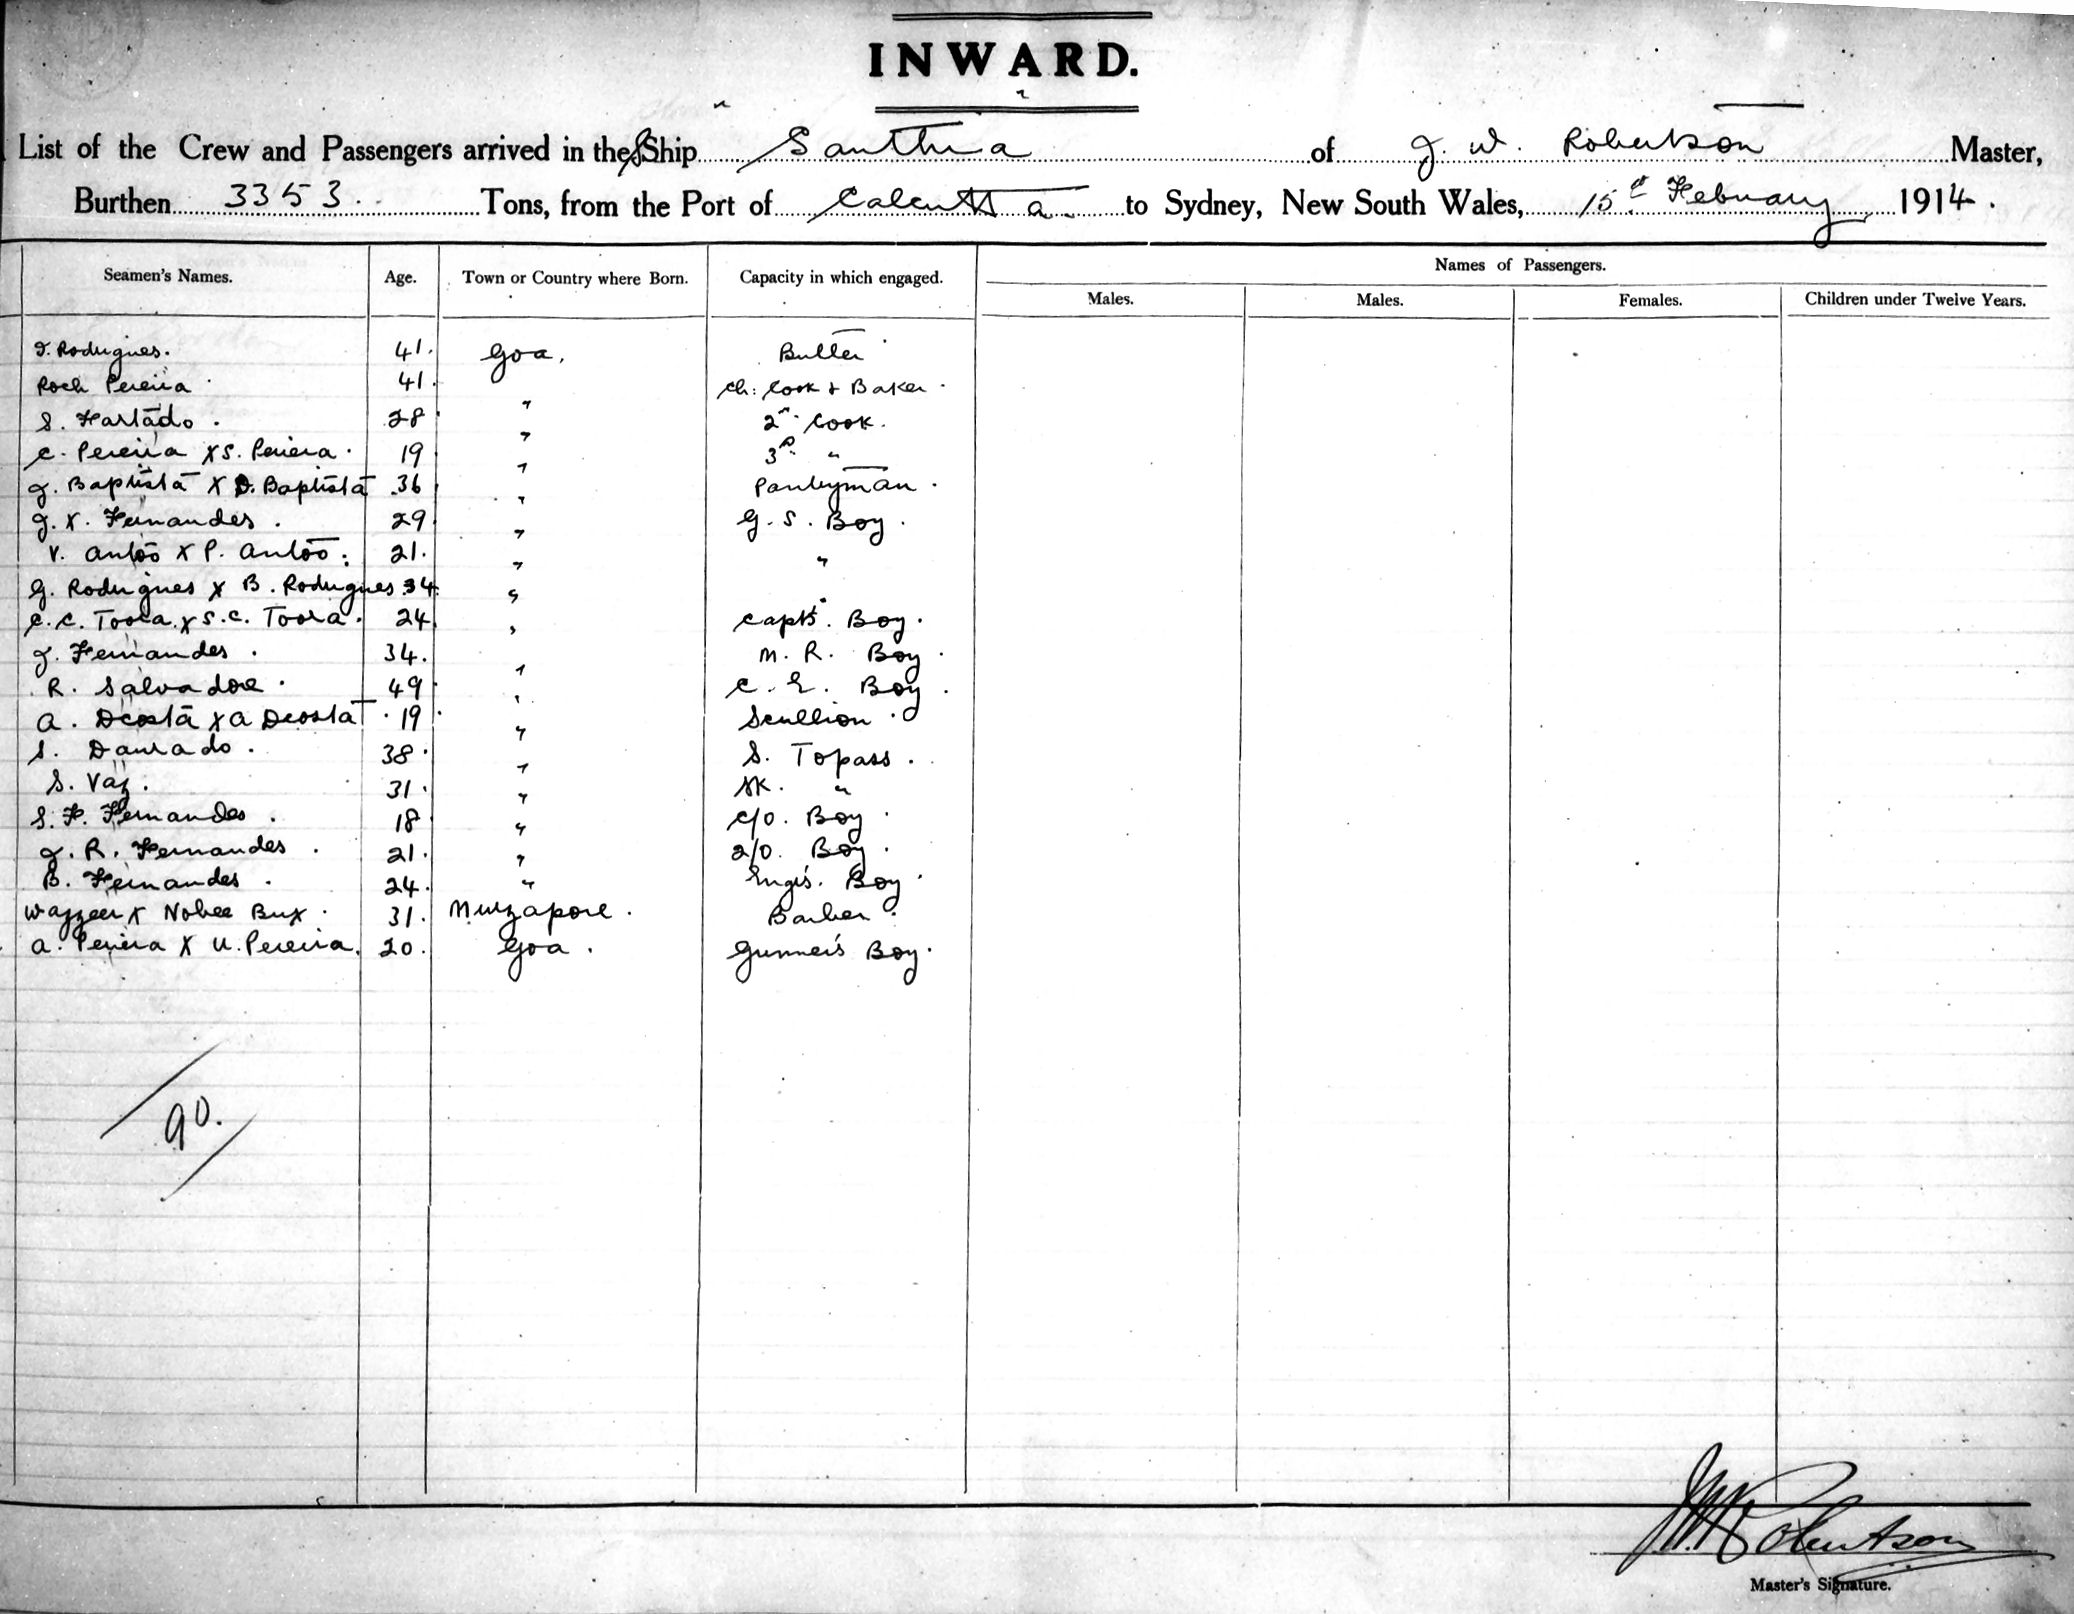 INWARD.
List of the Crew and Passengers arrived in the S Ship "Santhia" of J. W. Robertson Master,
Burthen 3353 Tons, from the Port of Calcutta to Sydney, New South Wales, 15th February 1914.
Seamen's Names. Age. Town or Country where Born. Capacity in which engaged. Names of Passengers.
Males. Males. Females. Children under Twelve Years.
Rodrigues. 41. Goa. Butler
Roch Pereira 41. " Ch: Cook & Baker.
S. Hartado. 28 " 2nd Cook.
C. Pereira X S. Pereira. 19 " 3rd "
J. Baptista X D. Baptista 36 " Pantryman.
J. X. Fernandes. 29 " G. S. Boy.
V. Antao X P. Antao. 21. " "
G. Rodrigues X B. Rodrigues 34 " "
C. C. Toora X S. C. Toora. 24 " Capts. Boy.
J. Fernandes. 34. " M. R. Boy.
R. Salvadore. 49 " C. E. Boy.
A. Dcosta X A Dcosta 19 " Scullion.
S. Daurado. 38. " S. Topass.
S. Vaz. 31. " "
S. F. Fernandes. 18 " C/O. Boy.
J. R. Fernandes. 21. " 2/O. Boy.
B. Fernandes. 24. " Engrs. Boy.
Wazzeer X Nobee Bux. 31. Murzapore. Barber.
A. Pereira X U. Pereira. 20. Goa. Gunner's Boy.
90.
J. W. Robertson
Master's Signature.